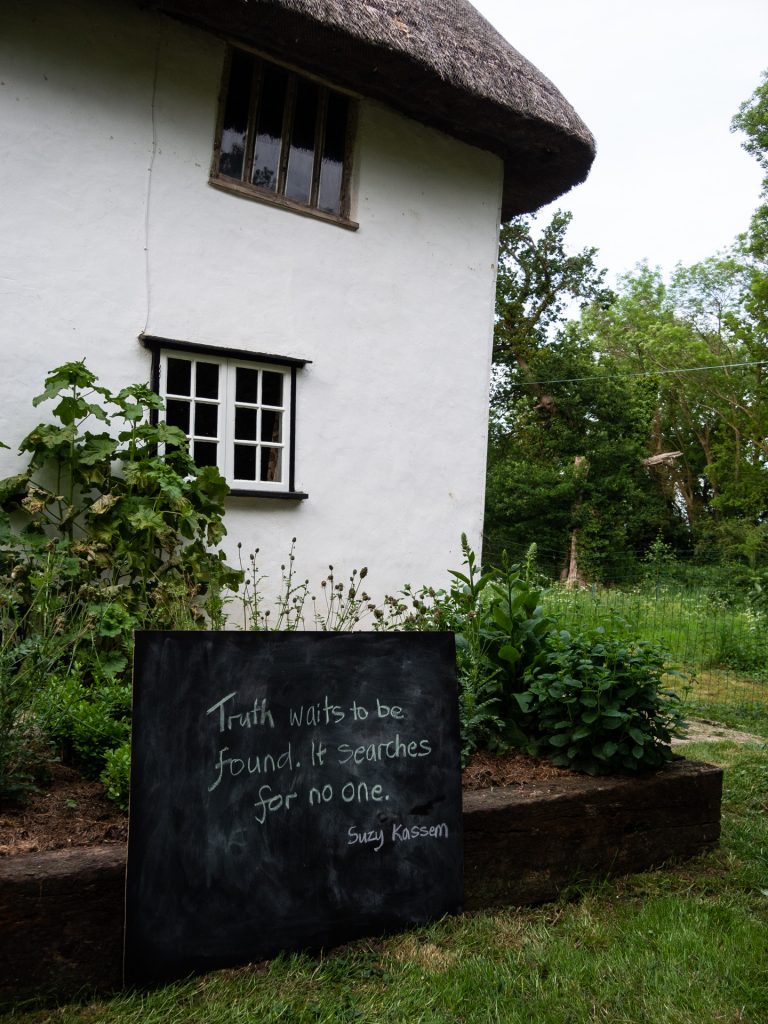 Truth waits to be
found. It searches
for no one.
Suzy Kassem